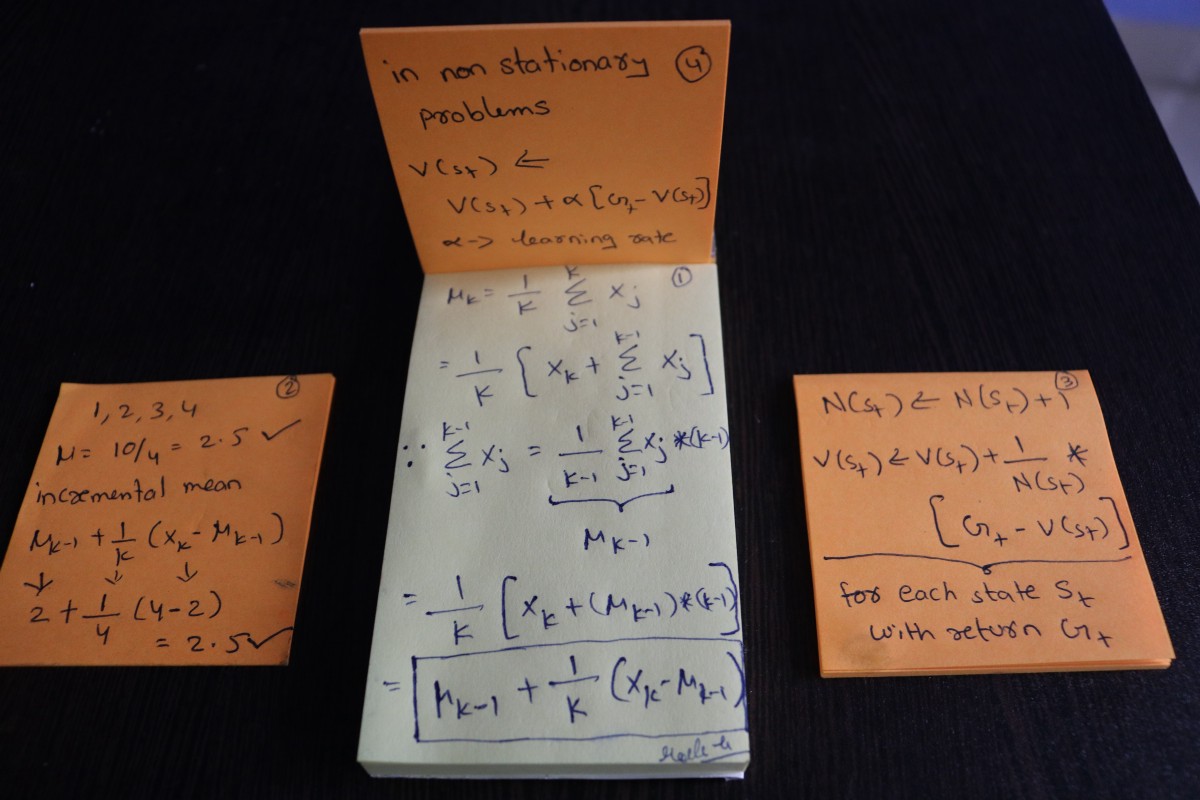 in non stationary ④
problems
V(Sₜ) ⇐
V(Sₜ) + α [Gₜ - V(Sₜ)]
α -> learning rate
①
μₖ = 1/K Σ_{j=1}^{K} xⱼ
= 1/K [ xₖ + Σ_{j=1}^{K-1} xⱼ ]
∵ Σ_{j=1}^{K-1} xⱼ = 1/(K-1) Σ_{j=1}^{K-1} xⱼ *(K-1)
μₖ₋₁
= 1/K [ xₖ + (μₖ₋₁) * (K-1) ]
= μₖ₋₁ + 1/K (xₖ - μₖ₋₁)
②
1, 2, 3, 4
μ = 10/4 = 2.5 ✓
incremental mean
μₖ₋₁ + 1/K (xₖ - μₖ₋₁)
↓ ↓ ↓
2 + 1/4 (4-2)
= 2.5 ✓
③
N(Sₜ) ⇐ N(Sₜ) + 1
V(Sₜ) ⇐ V(Sₜ) + 1/N(Sₜ) *
[Gₜ - V(Sₜ)]
for each state Sₜ
with return Gₜ